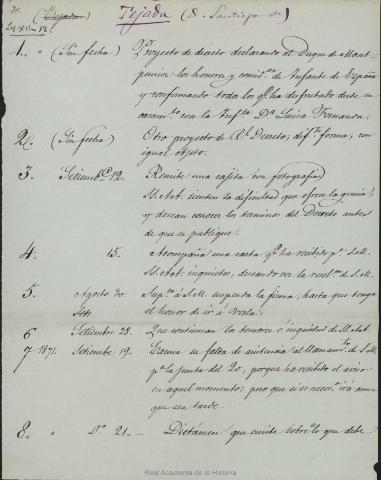 (Tejada) Tejada (D. Santiago de)
1. " (Sin fecha) Proyecto de decreto declarando al Duque de Mont-
pensier los honores y de Infante de España
y confirmando todos los q.e ha disfrutado desde su
casam.to con la Inf.ta D.a Luisa Fernanda.
2. (Sin fecha) Otro proyecto de R.l Decreto, dif.te forma, con
igual objeto.
3. Setiemb.e 12. Remite una cajita (con fotografia)
SS. AA. sienten la dificultad que ofrece la gracia,
y desean conocer los terminos del Decreto antes
de que se publique.
4. 15. Acompaña una carta q.e ha recibido p.a S.M.
SS. AA. inquietos, deseando ver la resol.on de S.M.
5. Agosto 30. Sup.ca á S.M. suspenta la firma, hasta que tenga
Set. el honor de ir á verla.
6 Setiembre 28. Que continuan los temores é inquietud de SS. AA.
7 1871. Setiembre 19. Excusa su falta de asistencia al llamam.to de S.M.
p.a la junta del 20, porque ha recibido el aviso
en aquel momento; pero que si es neces.o irá aun-
que sea tarde.
8. " D.o 21. - Dictámen que emite sobre lo que debe
Real Academia de la Historia